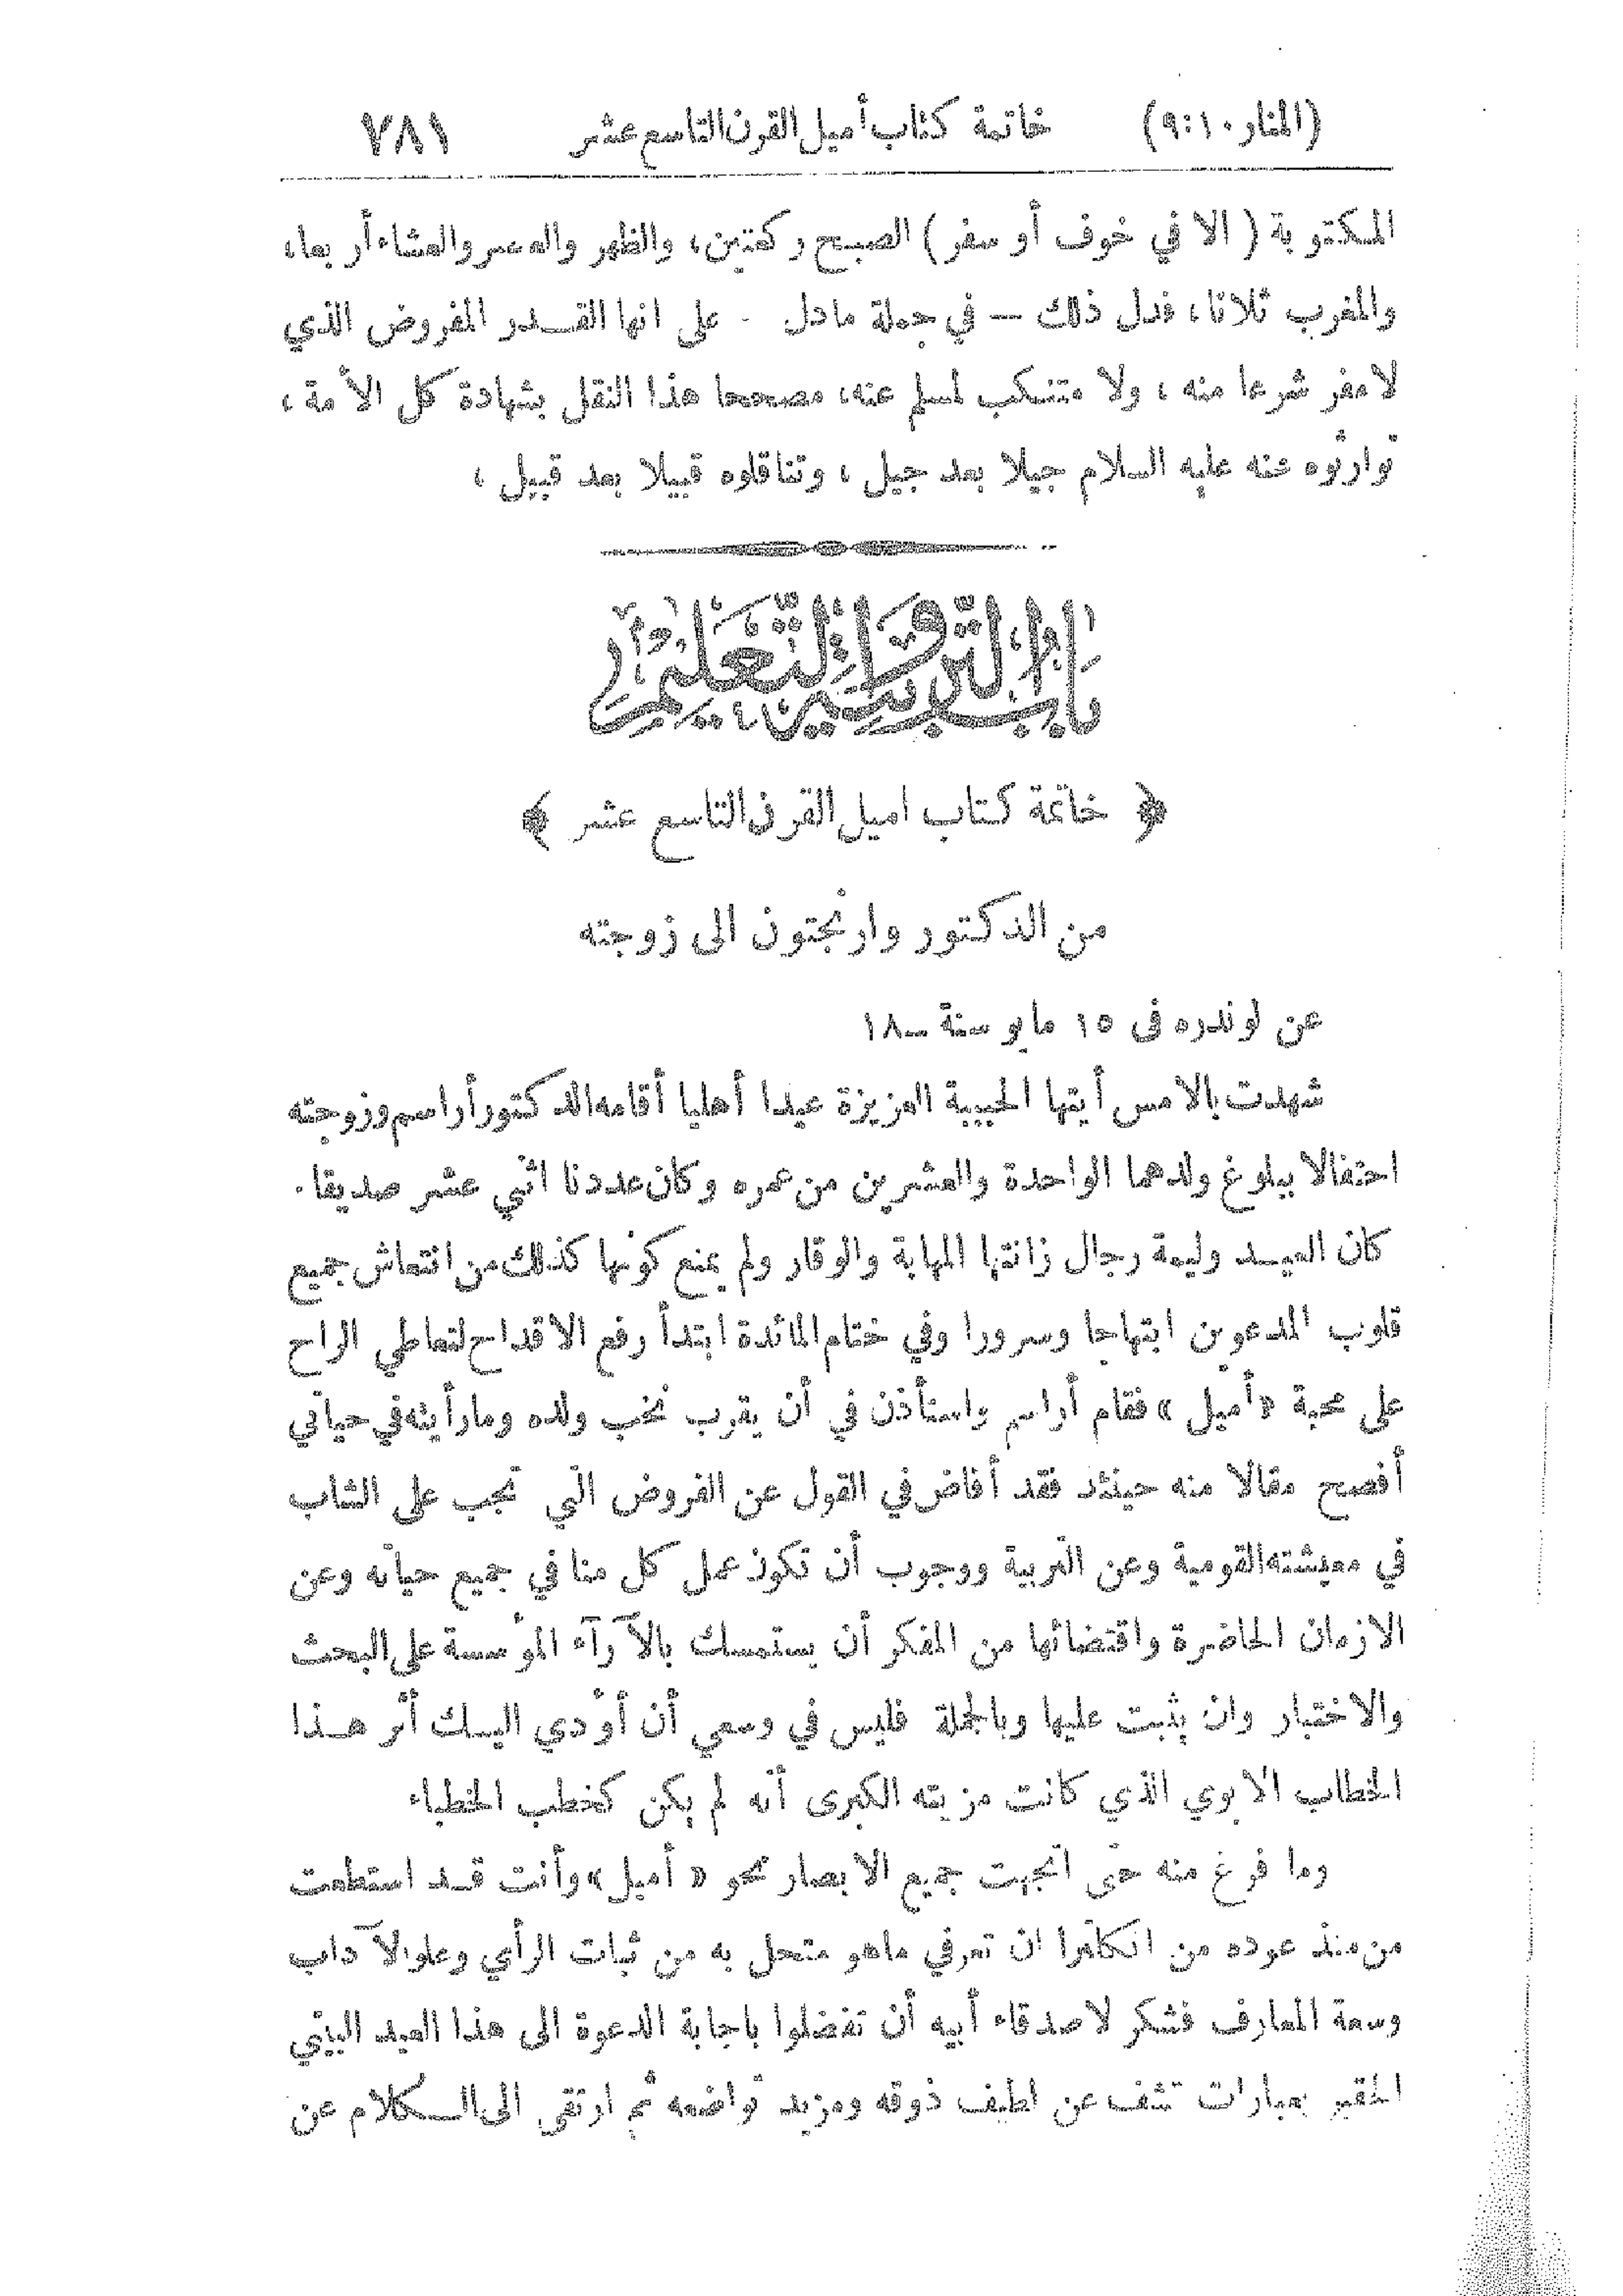 (المنار ١٠:٩) خاتمة كتاب أميل القرن التاسع عشر ٧٨١
المكتوبة ( الا في خوف أو سفر ) الصبح ركعتين، والظهر والعصر والعشاء أربعا،
والمغرب ثلاثا، فدل ذلك — في جملة مادل - على انها القدر المفروض الذي
لامفر شرعا منه ، ولا متنكب لمسلم عنه، مصححا هذا النقل بشهادة كل الأمة ،
توارثوه عنه عليه السلام جيلا بعد جيل ، وتناقلوه قبيلا بعد قبيل ،
باب التربية والتعليم
﴿ خاتمة كتاب اميل القرن التاسع عشر ﴾
من الدكتور وارنجتون الى زوجته
عن لوندره فى ١٥ مايو سنة ــ١٨
شهدت بالامس أيتها الحبيبة العزيزة عيدا أهليا أقامه الدكتور أراسم وزوجته
احتفالا ببلوغ ولدهما الواحدة والعشرين من عمره وكان عددنا اثني عشر صديقا.
كان العيد وليمة رجال زانتها المهابة والوقار ولم يمنع كونها كذلك من انتعاش جميع
قلوب المدعوين ابتهاجا وسرورا وفي ختام المائدة ابتدأ رفع الاقداح لتعاطي الراح
على محبة «أميل» فقام أراسم واستأذن في أن يقرب نخب ولده ومارأيته في حياتي
أفصح مقالا منه حينئذ فقد أفاض في القول عن الفروض التي تجب على الشاب
في معيشته القومية وعن التربية ووجوب أن تكون عمل كل منا في جميع حياته وعن
الازمان الحاضرة واقتضائها من المفكر أن يستمسك بالآرآء المؤسسة على البحث
والاختبار وان يثبت عليها وبالجملة فليس في وسعي أن أؤدي اليك أثر هذا
الخطاب الابوي الذي كانت مزيته الكبرى أنه لم يكن كخطب الخطباء
وما فرغ منه حتى اتجهت جميع الابصار نحو «أميل» وأنت قد استطعت
من منذ عوده من انكلترا ان تعرفي ماهو متحل به من ثبات الرأي وعلو الآداب
وسعة المعارف فشكر لاصدقاء أبيه أن تفضلوا باجابة الدعوة الى هذا العيد البيتي
الحقير بعبارات تشف عن لطيف ذوقه ومزيد تواضعه ثم ارتقى الى الكلام عن